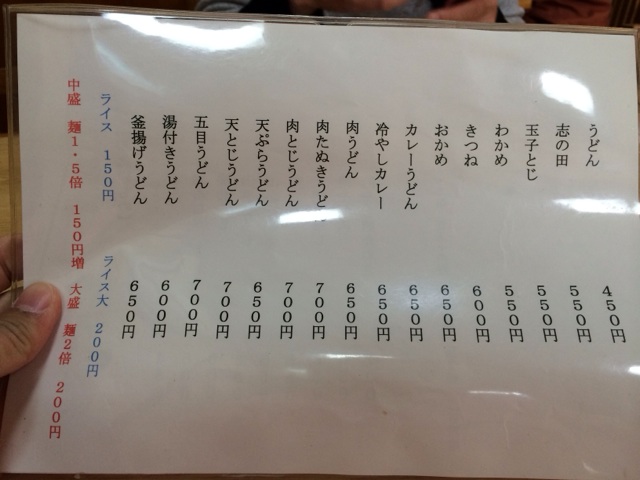 うどん　４５０円
志の田　５５０円
玉子とじ　５５０円
わかめ　５５０円
きつね　６００円
おかめ　６５０円
カレーうどん　６５０円
冷やしカレー　６５０円
肉うどん　６５０円
肉たぬきうど　７００円
肉とじうどん　７００円
天ぷらうどん　６５０円
天とじうどん　７００円
五目うどん　７００円
湯付きうどん　６００円
釜揚げうどん　６５０円
ライス　１５０円　ライス大　２００円
中盛　麺１・５倍　１５０円増　大盛　麺２倍　２００円